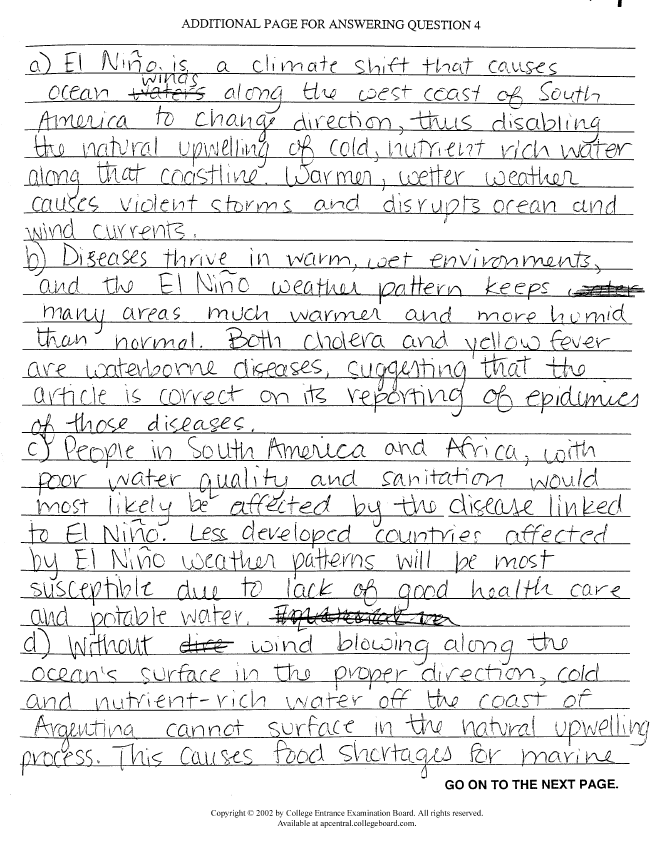 ADDITIONAL PAGE FOR ANSWERING QUESTION 4
a) El Niño is a climate shift that causes
ocean winds along the west coast of South
America to change direction, thus disabling
the natural upwelling of cold, nutrient rich water
along that coastline. Warmer, wetter weather
causes violent storms and disrupts ocean and
wind currents.
b) Diseases thrive in warm, wet environments,
and the El Niño weather pattern keeps
many areas much warmer and more humid
than normal. Both cholera and yellow fever
are waterborne diseases, suggesting that the
article is correct on its reporting of epidemics
of those diseases.
c) People in South America and Africa, with
poor water quality and sanitation would
most likely be affected by the disease linked
to El Niño. Less developed countries affected
by El Niño weather patterns will be most
susceptible due to lack of good health care
and potable water.
d) Without wind blowing along the
ocean's surface in the proper direction, cold
and nutrient-rich water off the coast of
Argentina cannot surface in the natural upwelling
process. This causes food shortages for marine
GO ON TO THE NEXT PAGE.
Copyright © 2002 by College Entrance Examination Board. All rights reserved.
Available at apcentral.collegeboard.com.